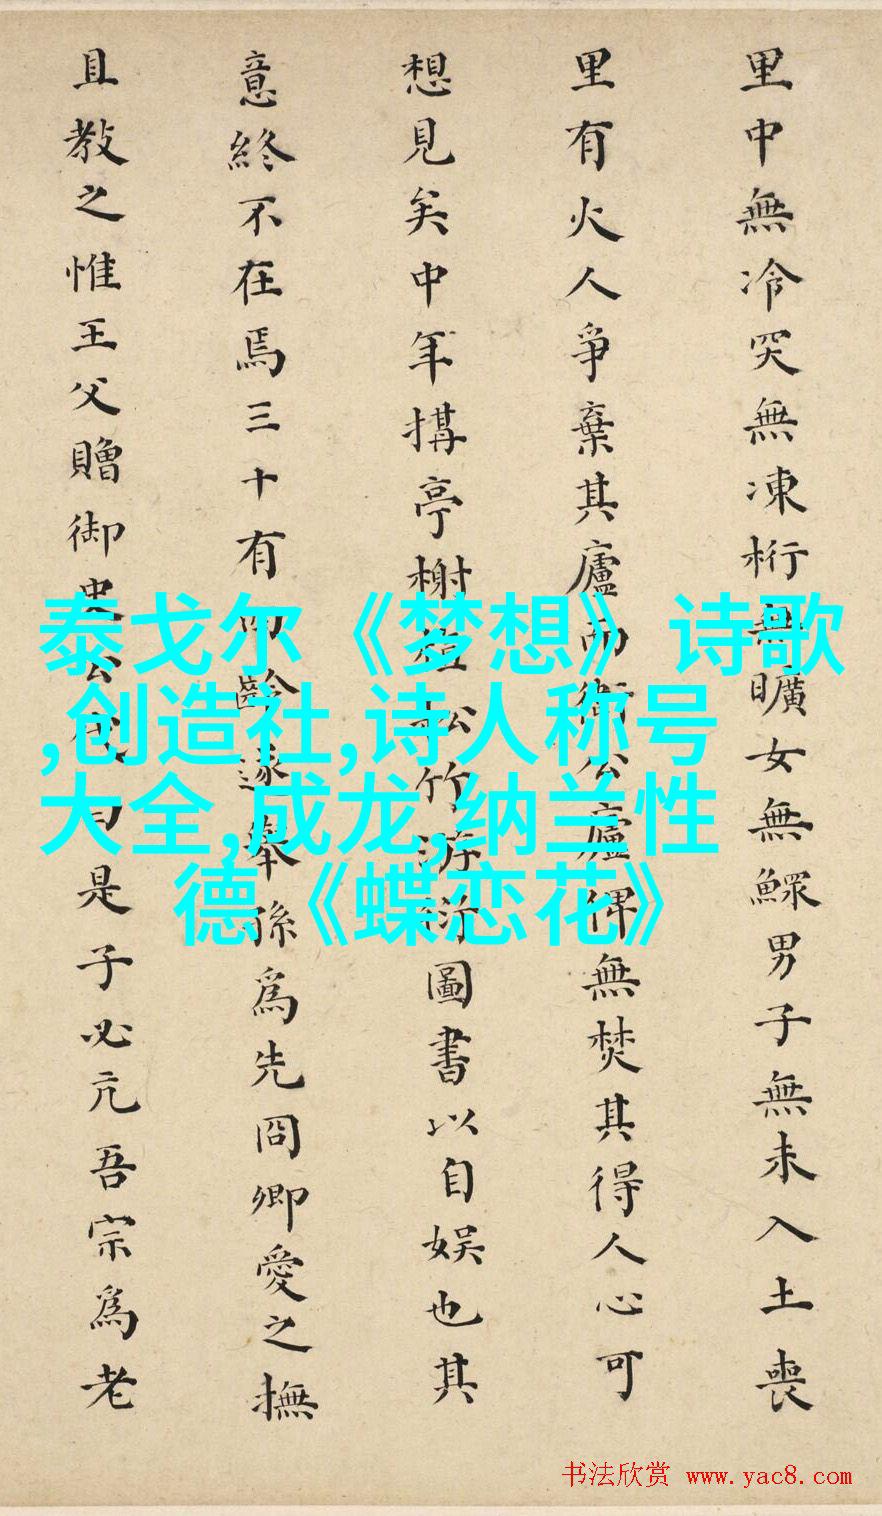 里中無冷突無凍桁無曠女無鰥男子無未入土喪
里有火人爭棄其廬而衛公廬俾無焚其得人心可
想見矣中年搆亭榭松竹游衍圖書以自娛也其
意終不在焉三十有齡遂舉孫為先冏卿愛之撫
且教之惟王父贈御史公曰是子必亢吾宗為老
泰戈尔《梦想》诗歌
,创造社,诗人称号
大全,成龙,纳兰性
德《蝶恋花》
书法欣赏 www.yac8.com